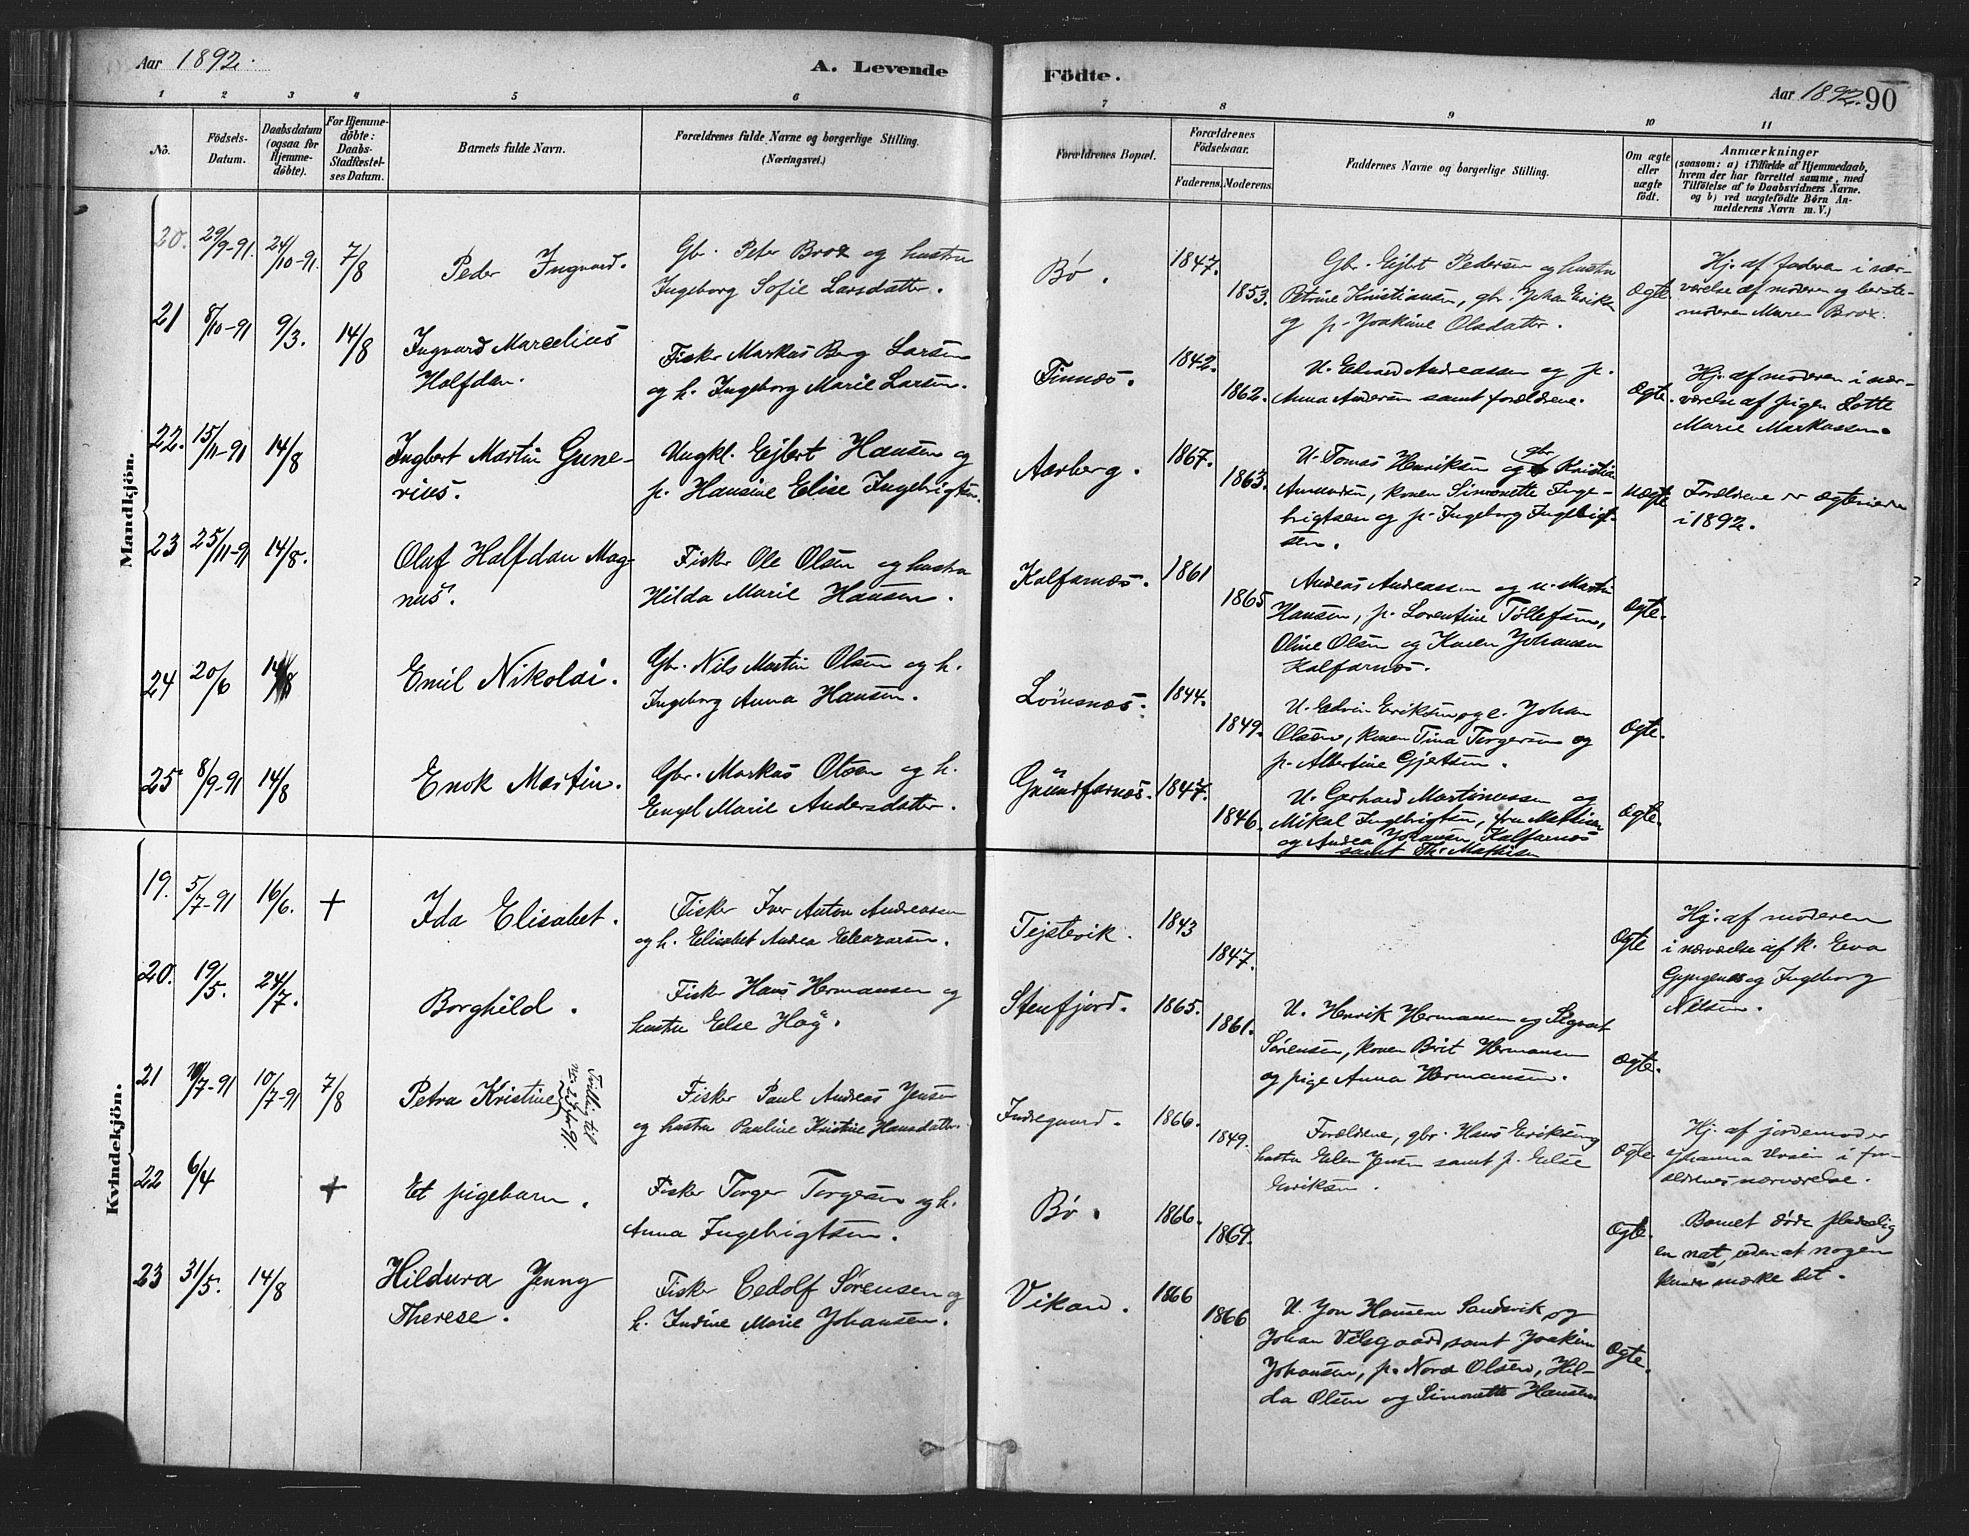 Aar 1892.
A. Levende
Födte.
Aar 1892. 90
1 2 3 4 5 6 7 8 9 10 11
No.
Födsels-
Datum.
Daabsdatum
(ogsaa for
Hjemme-
döbte).
For Hjemme-
döbte:
Daabs-
Stadfæstel-
ses Datum.
Barnets fulde Navn.
Forældrenes fulde Navne og borgerlige Stilling.
(Næringsvei.)
Forældrenes Bopæl.
Forældrenes
Födselsaar.
Faderens. Moderens.
Faddernes Navne og borgerlige Stilling.
Om ægte
eller
uægte
födt.
Anmærkninger
(saasom: a) i Tilfælde af Hjemmedaab,
hvem der har forrettet samme, med
Tilföielse af to Daabsvidners Navne.
og b) ved uægtefödte Börn An-
melderens Navn m. V.)
Mandkjön.
20. 29/9-91. 24/10-91. 7/8
Peder Ingvard.
Gbr. Peter Brox og hustru
Ingeborg Sofie Larsdatter.
Bø. 1847. 1853.
Gbr. Ejlert Pedersen og hustru
Petrine Kristiansen, gbr. Johan Eriks
og p. Joakime Olsdatter.
Ægte.
Hj. af faderen i nær-
værelse af moderen og berste-
moderen Maren Brox.
21 8/10-91 9/3. 14/8
Ingvard Marcelius
Halfdan.
Fisker Markus Berg Larsen
og h. Ingeborg Marie Larsen.
Finnæs. 1842. 1862.
U. Edvard Andreassen og p.
Anna Andersen samt forældrene.
Ægte.
Hj. af moderen i nær-
værelse af pigen Lotte
Marie Markussen.
22. 15/11-91 14/8
Ingbert Martin Gune-
rius.
Ungkl. Ejlert Hansen og
p. Hansine Elise Ingebrigtsen.
Aarberg. 1867. 1863.
U. Tomas Henriksen og gbr. Kristian
Amundsen, konen Simonette Inge-
brigtsen og p. Ingeborg Ingebrigt-
sen.
Uægte
Forældrene er ægteviede
i 1892.
23 25/11-91 14/8.
Oluf Halfdan Mag-
nus.
Fisker Ole Olsen og hustru
Hilda Marie Hansen.
Kalfarnæs. 1861 1865
Andreas Andreassen og u. Martin
Hansen, p. Lorentine Tollefsen,
Oline Olsen og Karen Johansen
Kalfarnæs.
Ægte.
24 20/6 14/8
Emil Nikolai.
Gbr. Nils Martin Olsen og h.
Ingeborg Anna Hansen.
Lømsnæs. 1844. 1849.
U. Edvin Eriksen og e. Johan
Olsen, konen Tina Torgersen og
p. Albertine Gjertsen.
Ægte.
25 8/9-91 14/8
Enok Martin.
Gbr. Markus Olsen og h.
Engel Marie Andersdatter.
Grundfarnæs. 1847. 1846.
U. Gerhard Martinussen og
Mikal Ingebrigtsen, fru Mathisen
og Andrea Johansen Kalfarnæs
samt Th. Mathisen
Ægte.
Kvindekjön.
19. 5/7-91 16/6. +
Ida Elisabet.
Fisker Iver Anton Andreassen
og h. Elisabet Andrea Eleazarsen.
Tejstevik. 1843 1847.
Ægte
Hj. af moderen
i nærværelse af k. Eva
og Ingeborg
Nilsen.
20. 19/5. 24/7.
Borghild.
Fisker Hans Hermansen og
hustru Else Hog.
Stenfjord. 1865. 1861.
U. Henrik Hermansen og Sigvart
Sørensen, konen Brit Hermansen
og pige Anna Hermansen.
Ægte.
21 10/7-91 10/7-91 7/8
Petra Kristine
Tvilling til
Fisker Paul Andreas Jensen
og hustru Pauline Kristine Hansdatter.
Indregaard. 1866. 1849.
Forældrene, gbr. Hans Eriksen og
hustru Elen Jensen samt p. Else
Eriksen.
Ægte
Hj. af jordemoder
Johanna Ursin i for-
ældrenes nærværelse.
22 6/4 +
Et pigebarn.
Fisker Torger Torgersen og h.
Anna Ingebrigtsen.
Bø. 1866. 1869.
Ægte.
Barnet døde pludselig
en nat, uden at nogen
kunde mærke det.
23 31/5. 14/8
Hildura Jenny
Therese.
Fisker Cedolf Sørensen og
h. Indine Marie Johansen.
Vikan. 1866 1866
U. Jon Hansen Sandvik og
Johan Vilsgaard samt Joakim
Johansen, p. Nora Olsen, Hil-
da Olsen og Simonette Hansen
Ægte.